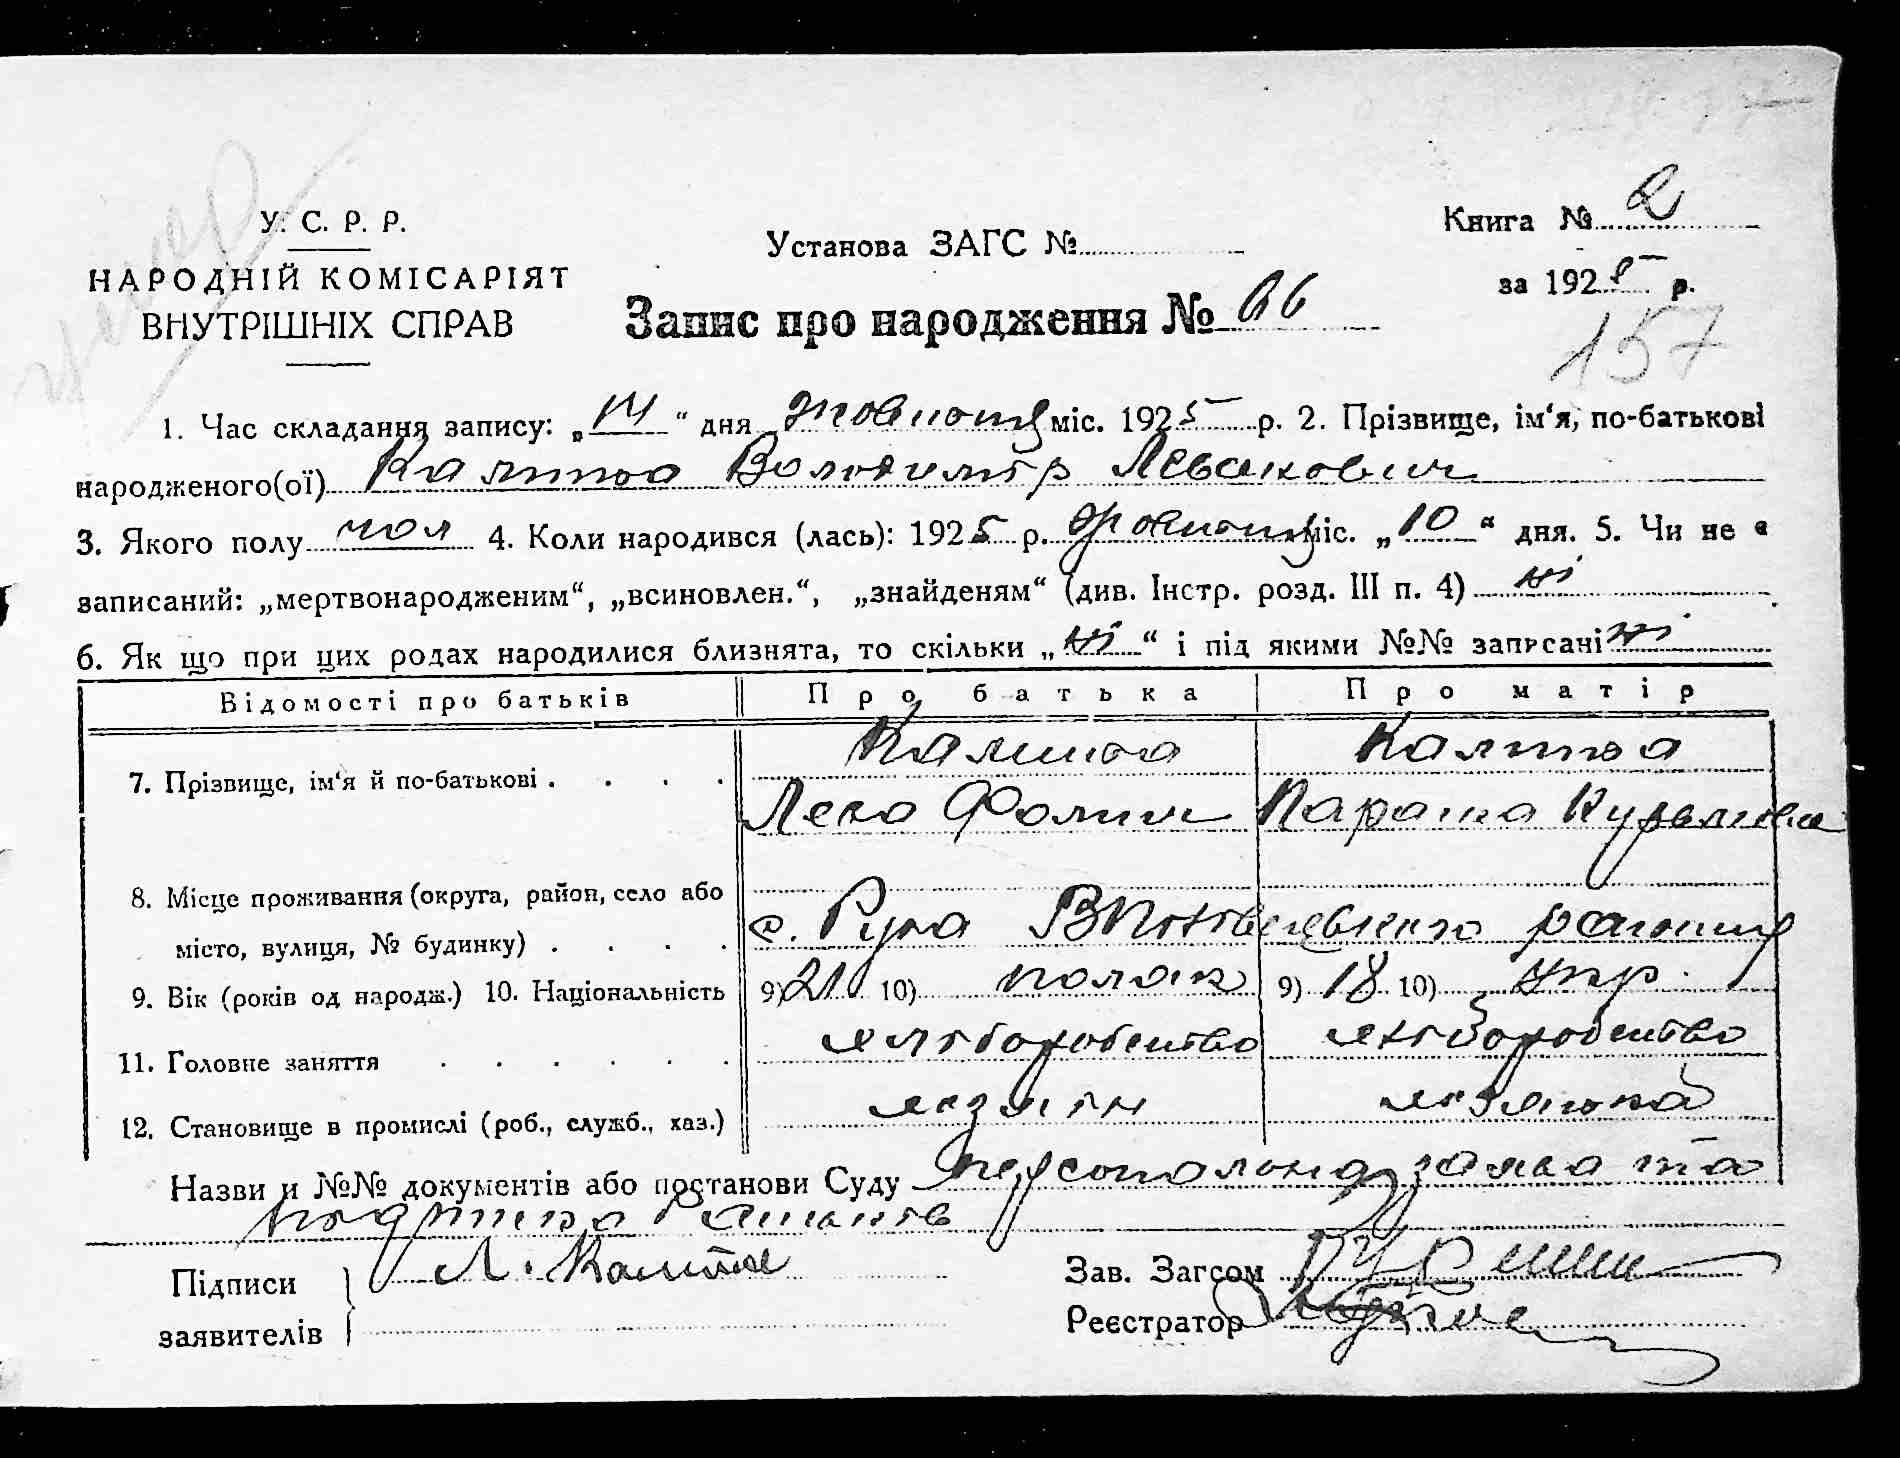 У. С. Р. Р.
НАРОДНІЙ КОМІСАРІЯТ
ВНУТРІШНІХ СПРАВ
Установа ЗАГС №
Книга № 2
за 1925 р.
Запис про народження № 66
157
1. Час складання запису: „14“ дня жовтня міс. 1925 р. 2. Прізвище, ім‘я, по-батькові
народженого(ої) Калита Володимір Левкович
3. Якого полу чол 4. Коли народився (лась): 1925 р. жовтня міс. „10“ дня. 5. Чи не є
записаний: „мертвонародженим“, „всиновлен.“, „знайденям“ (див. Інстр. розд. III п. 4) ні
6. Як що при цих родах народилися близнята, то скільки „ні“ і під якими №№ записані ні
Відомості про батьків Про батька Про матір
7. Прізвище, ім‘я й по-батькові . . . . Калита Калита
Левко Параска
8. Місце проживання (округа, район, село або
місто, вулиця, № будинку) . . . . с. Руда району
9. Вік (років од народж.) 10. Національність 9) 21 10) поляк 9) 18 10) укр.
11. Головне заняття . . . . . . хліборобство хліборобство
12. Становище в промислі (роб., служб., хаз.) хазяїн хазяйка
Назви и №№ документів або постанови Суду персональна заява та
Підписи заявителів Л. Калита
Зав. Загсом
Реєстратор